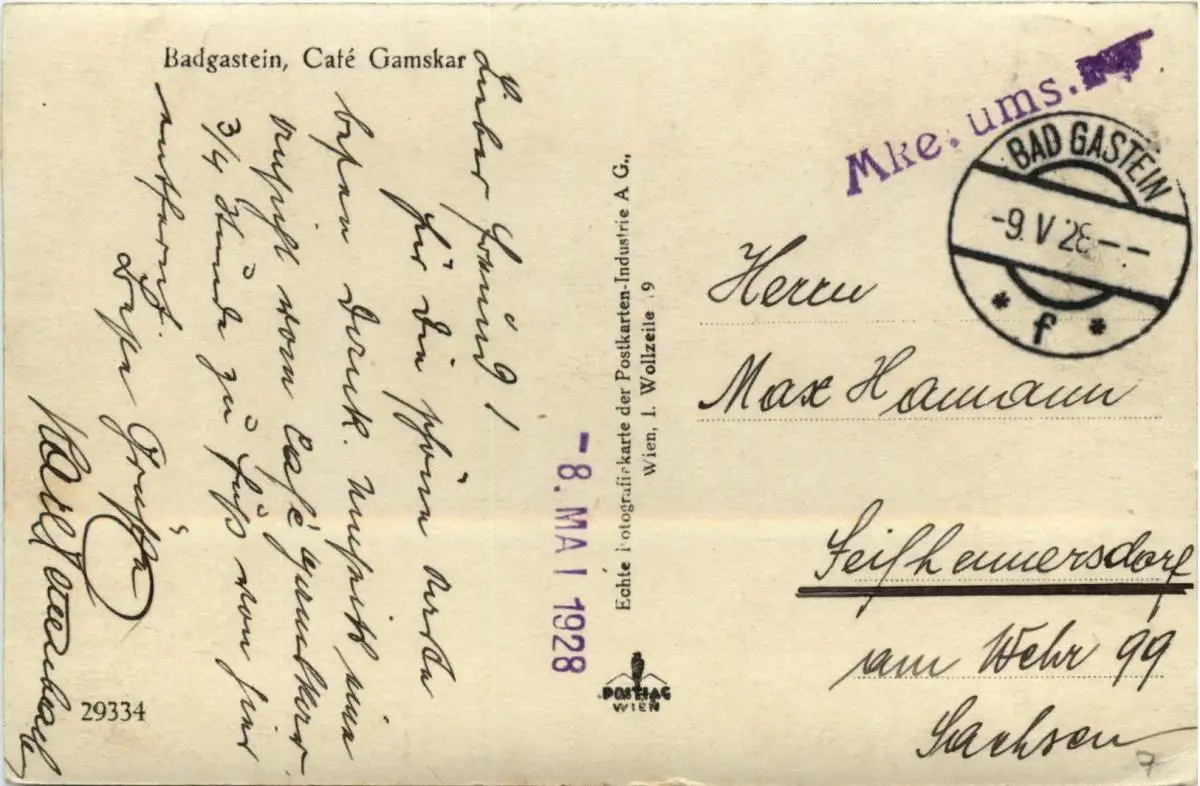 Badgastein, Café Gamskar
Lieber Freund!
für die schöne Karte
besten Dank.
vom Café Gamskar
3/4 Stunde zu Fuß von hier
entfernt.
Beste Grüße
Karl
29334
Echte Fotografiekarte der Postkarten-Industrie A G.,
Wien, I. Wollzeile 9
POSTIAG
WIEN
-8. MAI 1928
Mke. ums.
BAD GASTEIN
-9. V 28--
* f *
Herrn
Max Hamann
Seifhennersdorf
am Wehr 99
Sachsen
7